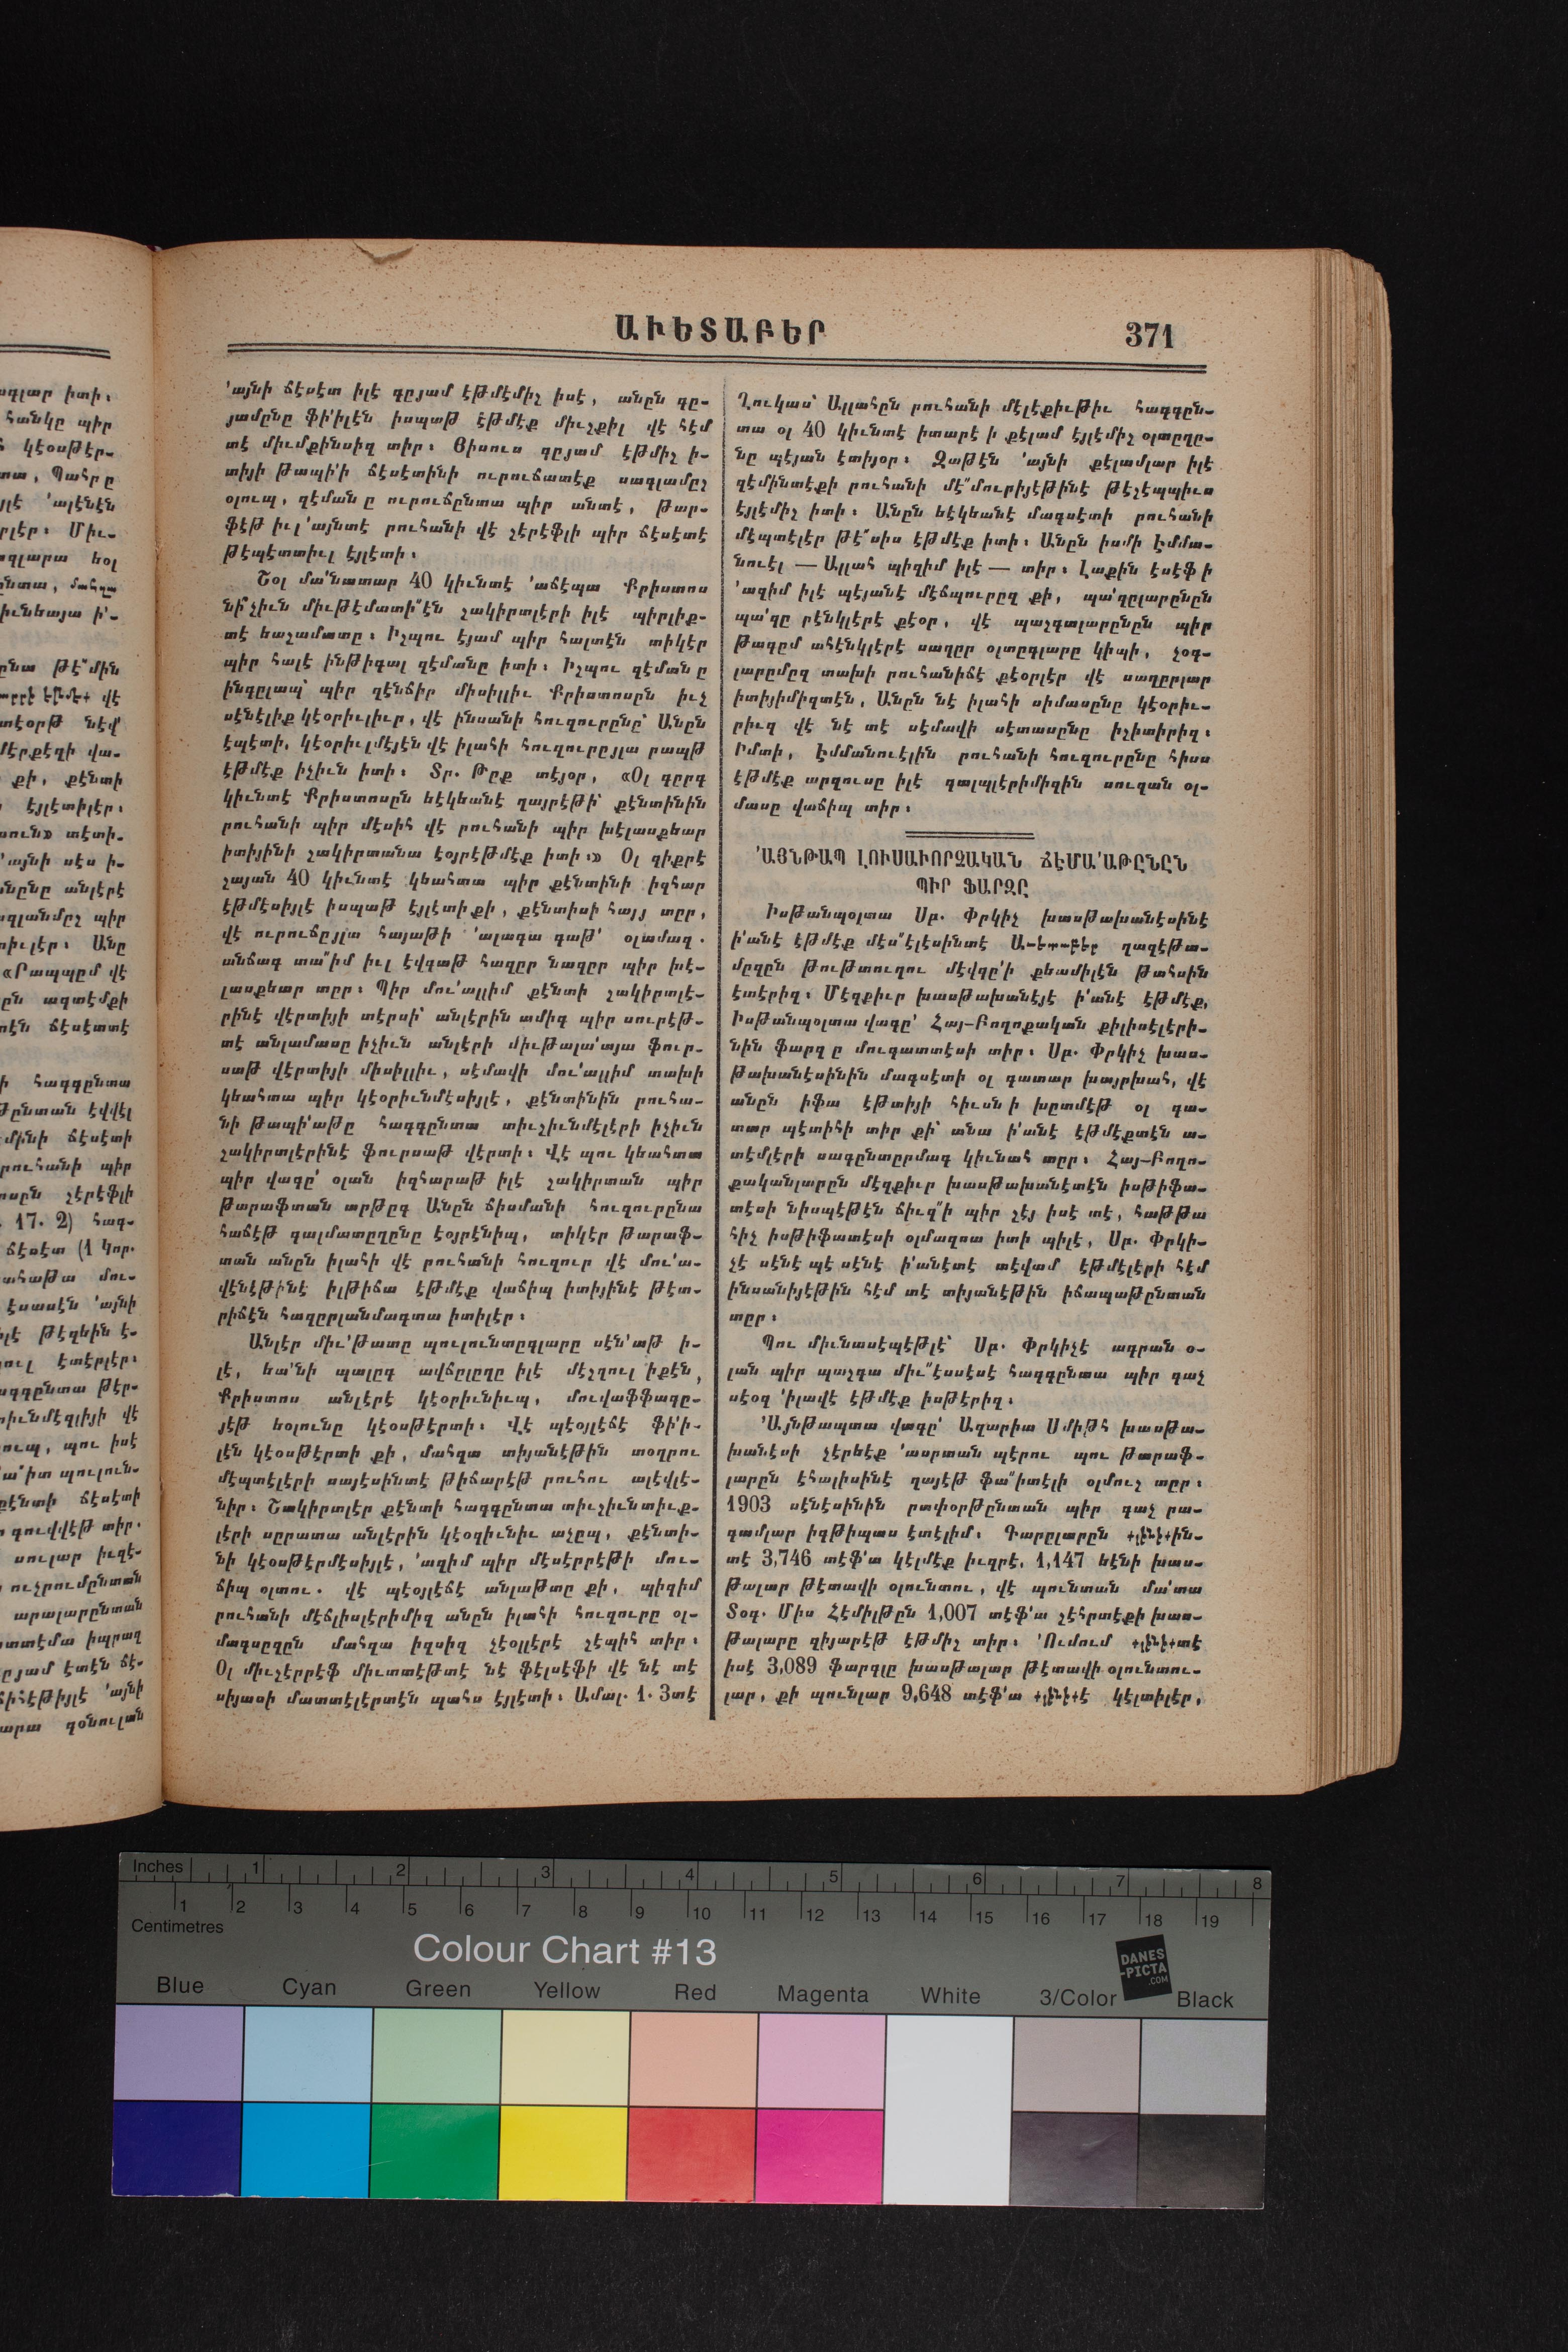 ԱՒԵՏԱԲԵՐ
371
'այնի ճէսէտ իլէ գըյամ էթմէմիշ իսէ, անըն գը-
յամընը ֆի'իլէն իսպաթ էթմէք միւշքիլ վէ հէմ
տէ միւմքինսիզ տիր։ Յիսուս գըյամ էթմիշ ի-
տիյի թապի'ի ճէսէտինի ուրուճատէք սագլամըշ
օլուպ, զէմանը ուրուճընտա պիր անտէ, թար-
ֆէթ իւլ'այնտէ րուհանի վէ շէրէֆլի պիր ճէսէտէ
թէպէտտիւլ էյլէտի։
Շօլ մա'նատար 40 կիւնտէ 'աճէպա Քրիստոս
նի՞չիւն միւթէմատի՞էն շակիրտլէրի իլէ պիրլիք-
տէ եաշամատը։ Իշպու էյամ պիր հալտէն տիկէր
պիր հալէ ինթիգալ զէմանը իտի։ Իշպու զէմանը
ինգըլապ՝ պիր զէնճիր միսիլլիւ Քրիստոսըն իւչ
սէնէլիք կէօրիւլիւր, վէ ինսանի հուզուրընը՝ Անըն
էպէտի, կէօրիւլմէյէն վէ իլահի հուզուրըյլա րապթ
էթմէք իչիւն իտի։ Տր. Թըք տէյօր, «Օլ գըրգ
կիւնտէ Քրիստոսըն եէկեանէ ղայրէթի՝ քէնտինին
րուհանի պիր մէսիհ վէ րուհանի պիր խէլասքեար
իտիյինի շակիրտանա էօյրէթմէք իտի։» Օլ զիքրէ
շայան 40 կիւնտէ կեահտա պիր քէնտինի իզհար
էթմէսիյլէ իսպաթ էյլէտի քի, քէնտիսի հայյ տըր,
վէ ուրուճըյլա հայաթի 'ալագա գաթ' օլամազ.
անճագ տա՞իմ իւլ էվգաթ հազըր նազըր պիր խէ-
լասքեար տըր։ Պիր մու'ալլիմ քէնտի շակիրտլէ-
րինէ վէրտիյի տէրսի՝ անլէրին ամիգ պիր սուրէթ-
տէ անլամասը իչիւն անլէրի միւթալա'այա ֆուր-
սաթ վէրտիյի միսիլլիւ, սէմավի մու'ալլիմ տախի
կեահտա պիր կէօրիւնմէսիյլէ, քէնտինին րուհա-
նի թապի'աթը հագգընտա տիւշիւնմէլէրի իչիւն
շակիրտլէրինէ ֆուրսաթ վէրտի։ Վէ պու կեահտա
պիր վագը' օլան իզհարաթ իլէ շակիրտան պիր
թարաֆտան արթըգ Անըն ճիսմանի հուզուրընա
հաճէթ գալմատըղընը էօյրէնիպ, տիկէր թարաֆ-
տան անըն իլահի վէ րուհանի հուզուր վէ մու'ա-
վէնէթինէ իլթիճա էթմէք վաճիպ իտիյինէ թէտ-
րիճէն հազըրլանմագտա իտիլէր։
Անլէր միւ'թատը պուլունտըգլարը սէն'աթ ի-
լէ, եա'նի պալըգ ավճըլըղը իլէ մէշղուլ իքէն,
Քրիստոս անլէրէ կէօրիւնիւպ, մուվաֆֆագը-
յէթ եօլունը կէօսթէրտի։ Վէ պէօյլէճէ ֆի'ի-
լէն կէօսթէրտի քի, մահզա տիյանէթին տօղրու
մէպտէլէրի սայէսինտէ թիճարէթ րուհու ալէվլէ-
նիր։ Շակիրտլէր քէնտի հագգընտա տիւշիւնտիւք-
լէրի սըրատա անլէրին կէօզիւնիւ աչըպ, քէնտի-
նի կէօսթէրմէսիյլէ, 'ազիմ պիր մէսէրրէթի մու-
ճիպ օլտու. վէ պէօյլէճէ անլաթտը քի, պիզիմ
րուհանի մէճլիսլէրիմիզ անըն իլահի հուզուրը օլ-
մագսըզըն մահզա իզսիզ շէօլլէրէ շէպիհ տիր։
Օլ միւշէրրէֆ միւտտէթտէ նէ ֆէլսէֆի վէ նէ տէ
սիյասի մատտէլէրտէն պահս էյլէտի։ Ամալ. 1. 3տէ
Ղուկաս՝ Ալլահըն րուհանի մէլէքիւթիւ հագգըն-
տա օլ 40 կիւնտէ իտարէ ի քէլամ էյլէմիշ օլտըղը-
նը պէյան էտիյօր։ Զաթէն 'այնի քէլամլար իլէ
զէմինտէքի րուհանի մէ՞մուրիյէթինէ թէշէպպիւս
էյլէմիշ իտի։ Անըն եէկեանէ մագսէտի րուհանի
մէպտէլէր թէ՞սիս էթմէք իտի։ Անըն իսմի Էմմա-
նուէլ — Ալլահ պիզիմ իլէ — տիր։ Լաքին էսէֆ ի
'ազիմ իլէ պէյանէ մէճպուրըզ քի, պա'զըլարընըն
պա'զը րէնկլէրէ քէօր, վէ պաշգալարընըն պիր
թագըմ ահէնկլէրէ սաղըր օլտըգլարը կիպի, չօգ-
լարըմըզ տախի րուհանիճէ քէօրլէր վէ սաղըրլար
իտիյիմիզտէն, Անըն նէ իլահի սիմասընը կէօրիւ-
րիւզ վէ նէ տէ սէմավի սէտասընը իշիտիրիզ։
Իմտի, Էմմանուէլին րուհանի հուզուրընը հիսս
էթմէք արզուսը իլէ գալպլէրիմիզին սուզան օլ-
մասը վաճիպ տիր։
'ԱՅՆԹԱՊ ԼՈՒՍԱՒՈՐՉԱԿԱՆ ՃԷՄԱ'ԱԹԸՆԸՆ
ՊԻՐ ՖԱՐԶԸ
Իսթանպօլտա Սբ. Փրկիչ խասթախանէսինէ
ի'անէ էթմէք մէս՞էլէսինտէ Աւետաբեր ղազէթա-
մըզըն թութտուղու մէվգը'ի քեամիլէն թահսին
էտէրիզ։ Մէզքիւր խասթախանէյէ ի'անէ էթմէք,
Իսթանպօլտա վագը' Հայ-Բողոքական քիլիսէլէրի-
նին ֆարզ ը մուգատտէսի տիր։ Սբ. Փրկիչ խաս-
թախանէսինին մագսէտի օլ գատար խայրխահ, վէ
անըն իֆա էթտիյի հիւսն ի խըտմէթ օլ գա-
տար պէտիհի տիր քի՝ անա ի'անէ էթմէքտէն ա-
տէմլէրի սագընտըրմագ կիւնահ տըր։ Հայ-Բողո-
քականլարըն մէզքիւր խասթախանէտէն իսթիֆա-
տէսի նիսպէթէն ճիւզ՞ի պիր շէյ իսէ տէ, հաթթա
հիչ իսթիֆատէսի օլմազսա իտի պիլէ, Սբ. Փրկի-
չէ սէնէ պէ սէնէ ի'անէտէ տէվամ էթմէլէրի հէմ
ինսանիյէթին հէմ տէ տիյանէթին իճապաթընտան
տըր։
Պու միւնասէպէթլէ՝ Սբ. Փրկիչէ ագրան օ-
լան պիր պաշգա միւ՞էսսէսէ հագգընտա պիր գաչ
սէօզ 'իլավէ էթմէք իսթէրիզ։
'Այնթապտա վագը' Ազարիա Սմիթհ խասթա-
խանէսի չէրեէք 'ասրտան պէրու պու թարաֆ-
լարըն էհալիսինէ ղայէթ ֆա՞իտէլի օլմուշ տըր։
1903 սէնէսինին րափօրթընտան պիր գաչ րա-
գամլար իգթիպաս էտէլիմ։ Գարըլարըն քլինիքին-
տէ 3,746 տէֆ'ա կէլմէք իւզրէ, 1,147 եէնի խաս-
թալար թէտավի օլունտու, վէ պունտան մա'տա
Տօգ. Միս Հէմիլթըն 1,007 տէֆ'ա շէհրտէքի խաս-
թալարը զիյարէթ էթմիշ տիր։ 'Ումում քլինիքտէ
իսէ 3,089 ֆարգլը խասթալար թէտավի օլունտու-
լար, քի պունլար 9,648 տէֆ'ա քլինիքէ կէլտիլէր,